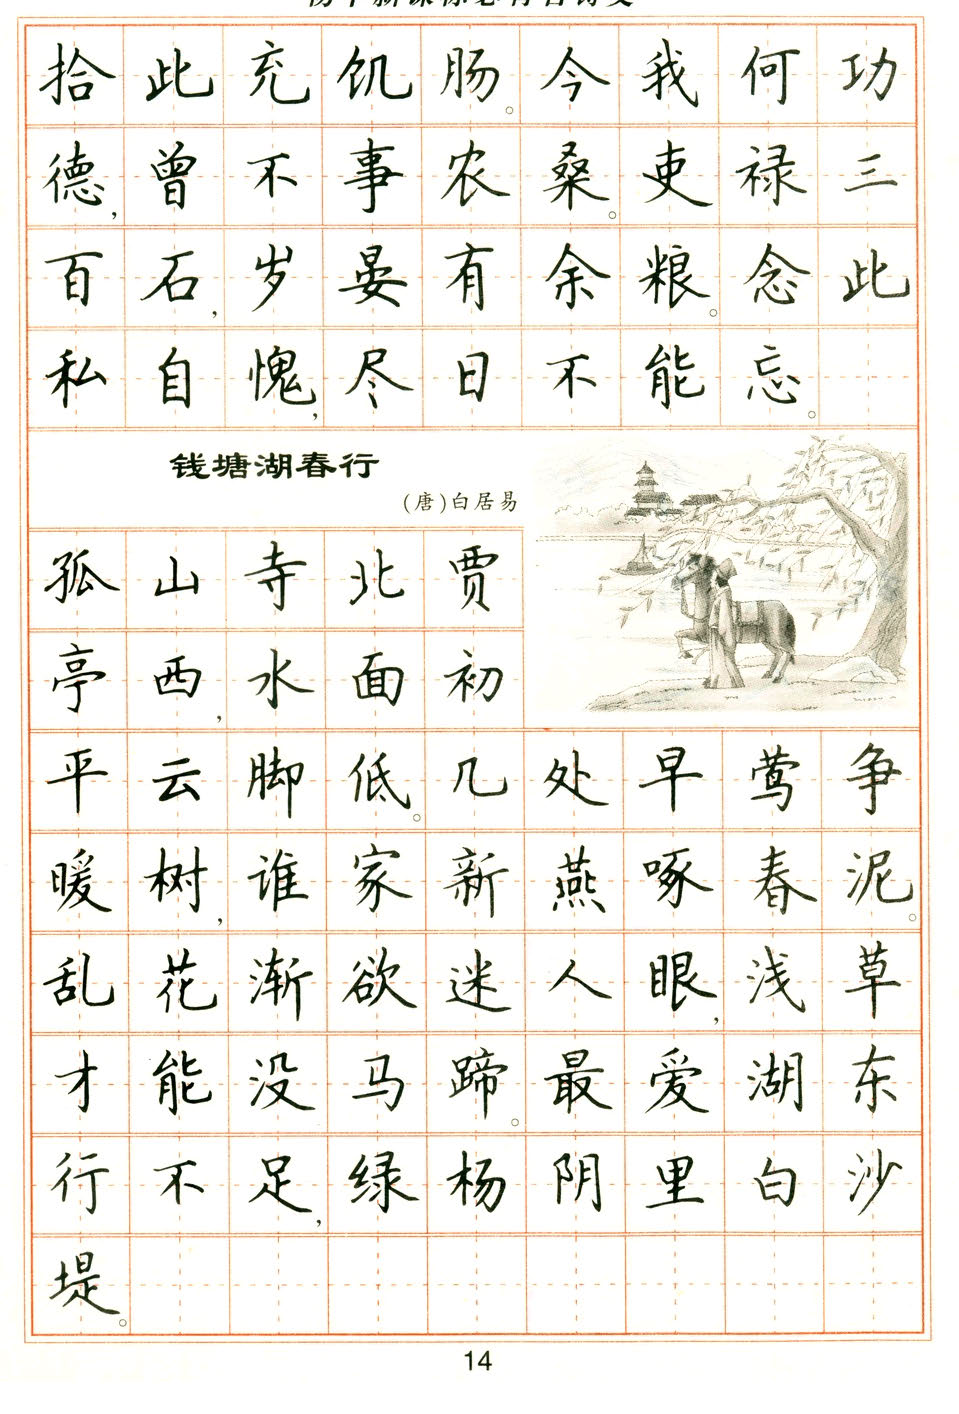 拾此充饥肠。今我何功
德，曾不事农桑。吏禄三
百石，岁晏有余粮。念此
私自愧，尽日不能忘。
钱塘湖春行
(唐)白居易
孤山寺北贾
亭西，水面初
平云脚低。几处早莺争
暖树，谁家新燕啄春泥。
乱花渐欲迷人眼，浅草
才能没马蹄。最爱湖东
行不足，绿杨阴里白沙
堤。
14